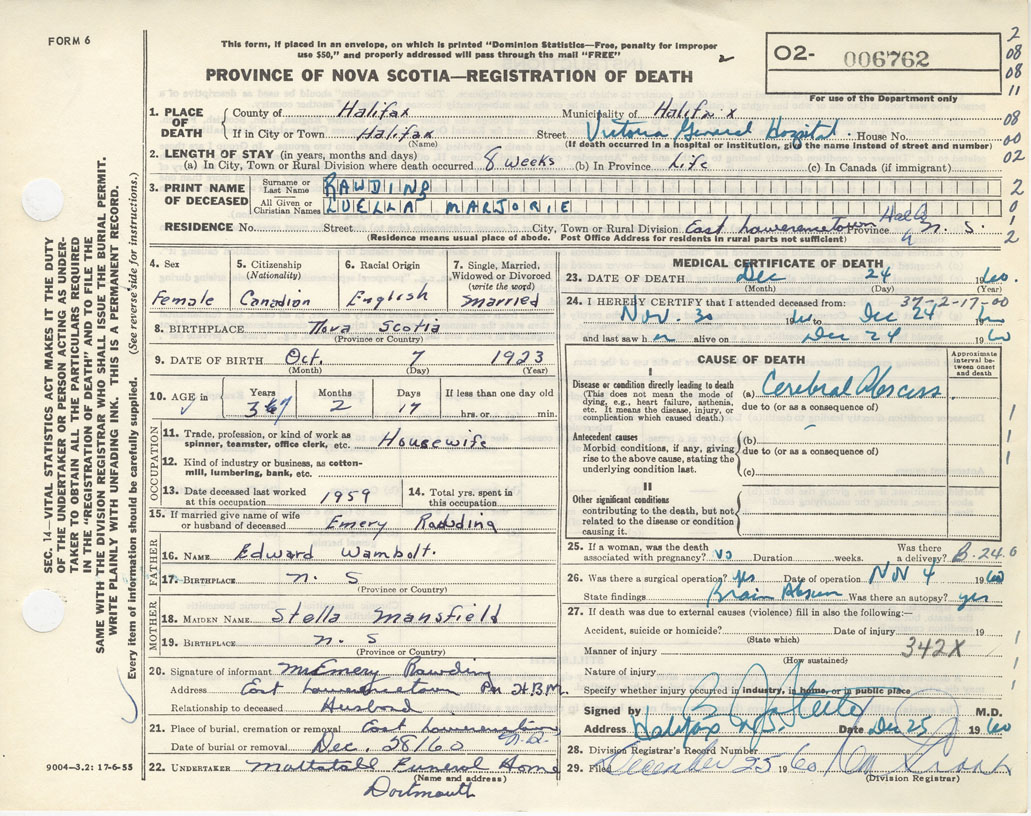 FORM 6
This form, if placed in an envelope, on which is printed "Dominion Statistics—Free, penalty for improper
use $50," and properly addressed will pass through the mail "FREE"
PROVINCE OF NOVA SCOTIA—REGISTRATION OF DEATH
2
O2- 006762
For use of the Department only
2
08
08
11
08
00
02
2
0
1
2
1. PLACE OF DEATH
County of Halifax Municipality of Halifax
If in City or Town Halifax Street Victoria General Hospital. House No.
(Name) (If death occurred in a hospital or institution, give the name instead of street and number)
2. LENGTH OF STAY (in years, months and days)
(a) In City, Town or Rural Division where death occurred 8 weeks (b) In Province Life (c) In Canada (if immigrant)
3. PRINT NAME OF DECEASED
Surname or Last Name RAWDING
All Given or Christian Names LUELLA MARJORIE
RESIDENCE No. Street City, Town or Rural Division East Lawrencetown Province N. S.
(Residence means usual place of abode. Post Office Address for residents in rural parts not sufficient)
4. Sex Female
5. Citizenship (Nationality) Canadian
6. Racial Origin English
7. Single, Married, Widowed or Divorced (write the word) Married
8. BIRTHPLACE Nova Scotia
(Province or Country)
9. DATE OF BIRTH Oct. 7 1923
(Month) (Day) (Year)
10. AGE in Years Months 2 Days 17 If less than one day hrs. or min.
OCCUPATION
11. Trade, profession, or kind of work as spinner, teamster, office clerk, etc. Housewife
12. Kind of industry or business, as cotton-mill, lumbering, bank, etc.
13. Date deceased last worked at this occupation 1959
14. Total yrs. spent in this occupation
15. If married give name of wife or husband of deceased Emery Rawding
FATHER
16. NAME Edward Wambolt.
17. BIRTHPLACE N. S
(Province or Country)
MOTHER
18. MAIDEN NAME Stella Mansfield
19. BIRTHPLACE N. S
(Province or Country)
20. Signature of informant Mr Emery Rawding
Address East Lawrencetown
Relationship to deceased Husband
21. Place of burial, cremation or removal East Lawrencetown
Date of burial or removal Dec. 28/60
22. UNDERTAKER Mattatall Funeral Home
(Name and address)
Dartmouth
MEDICAL CERTIFICATE OF DEATH
23. DATE OF DEATH Dec 24 60
(Month) (Day) (Year)
24. I HEREBY CERTIFY that I attended deceased from: 37-2-17-00
Nov. 30 1960 to Dec 24 1960
and last saw h er alive on Dec 24 1960
CAUSE OF DEATH
Approximate interval between onset and death
I
Disease or condition directly leading to death
(This does not mean the mode of dying, e.g., heart failure, asthenia, etc. It means the disease, injury, or complication which caused death.)
(a) Cerebral Abscess
due to (or as a consequence of)
Antecedent causes
Morbid conditions, if any, giving rise to the above cause, stating the underlying condition last.
(b)
due to (or as a consequence of)
(c)
II
Other significant conditions
contributing to the death, but not related to the disease or condition causing it.
25. If a woman, was the death associated with pregnancy? No Duration weeks. Was there a delivery?
26. Was there a surgical operation? yes Date of operation 4 1960
State findings Brain Abscess Was there an autopsy? yes
27. If death was due to external causes (violence) fill in also the following:—
Accident, suicide or homicide? Date of injury 19
(State which)
Manner of injury 342X
(How sustained)
Nature of injury
Specify whether injury occurred in industry, in home, or in public place
Signed by M.D.
Address Halifax N.S. Date Dec 25 1960
28. Division Registrar's Record Number
29. Filed December 25 1960
(Division Registrar)
SEC. 14—VITAL STATISTICS ACT MAKES IT THE DUTY
OF THE UNDERTAKER OR PERSON ACTING AS UNDER-
TAKER TO OBTAIN ALL THE PARTICULARS REQUIRED
IN THE "REGISTRATION OF DEATH" AND TO FILE THE
SAME WITH THE DIVISION REGISTRAR WHO SHALL ISSUE THE BURIAL PERMIT.
WRITE PLAINLY WITH UNFADING INK. THIS IS A PERMANENT RECORD.
Every item of information should be carefully supplied. (See reverse side for instructions.)
9004—3.2: 17-6-55